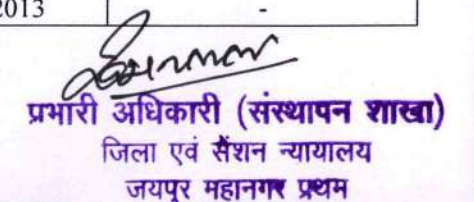 2013 -
प्रभारी अधिकारी (संस्थापन शाखा)
जिला एवं सैंशन न्यायालय
जयपुर महानगर प्रथम